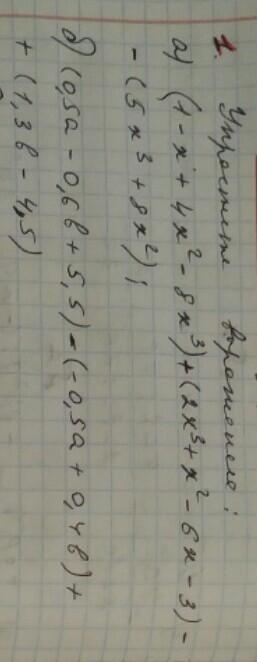 1. Упростите выражение:
а) (1 - x + 4x² - 8x³) + (2x³ + x² - 6x - 3) -
- (5x³ + 8x²);
б) (0,5a - 0,6b + 5,5) - (-0,5a + 0,4b) +
+ (1,3b - 4,5)